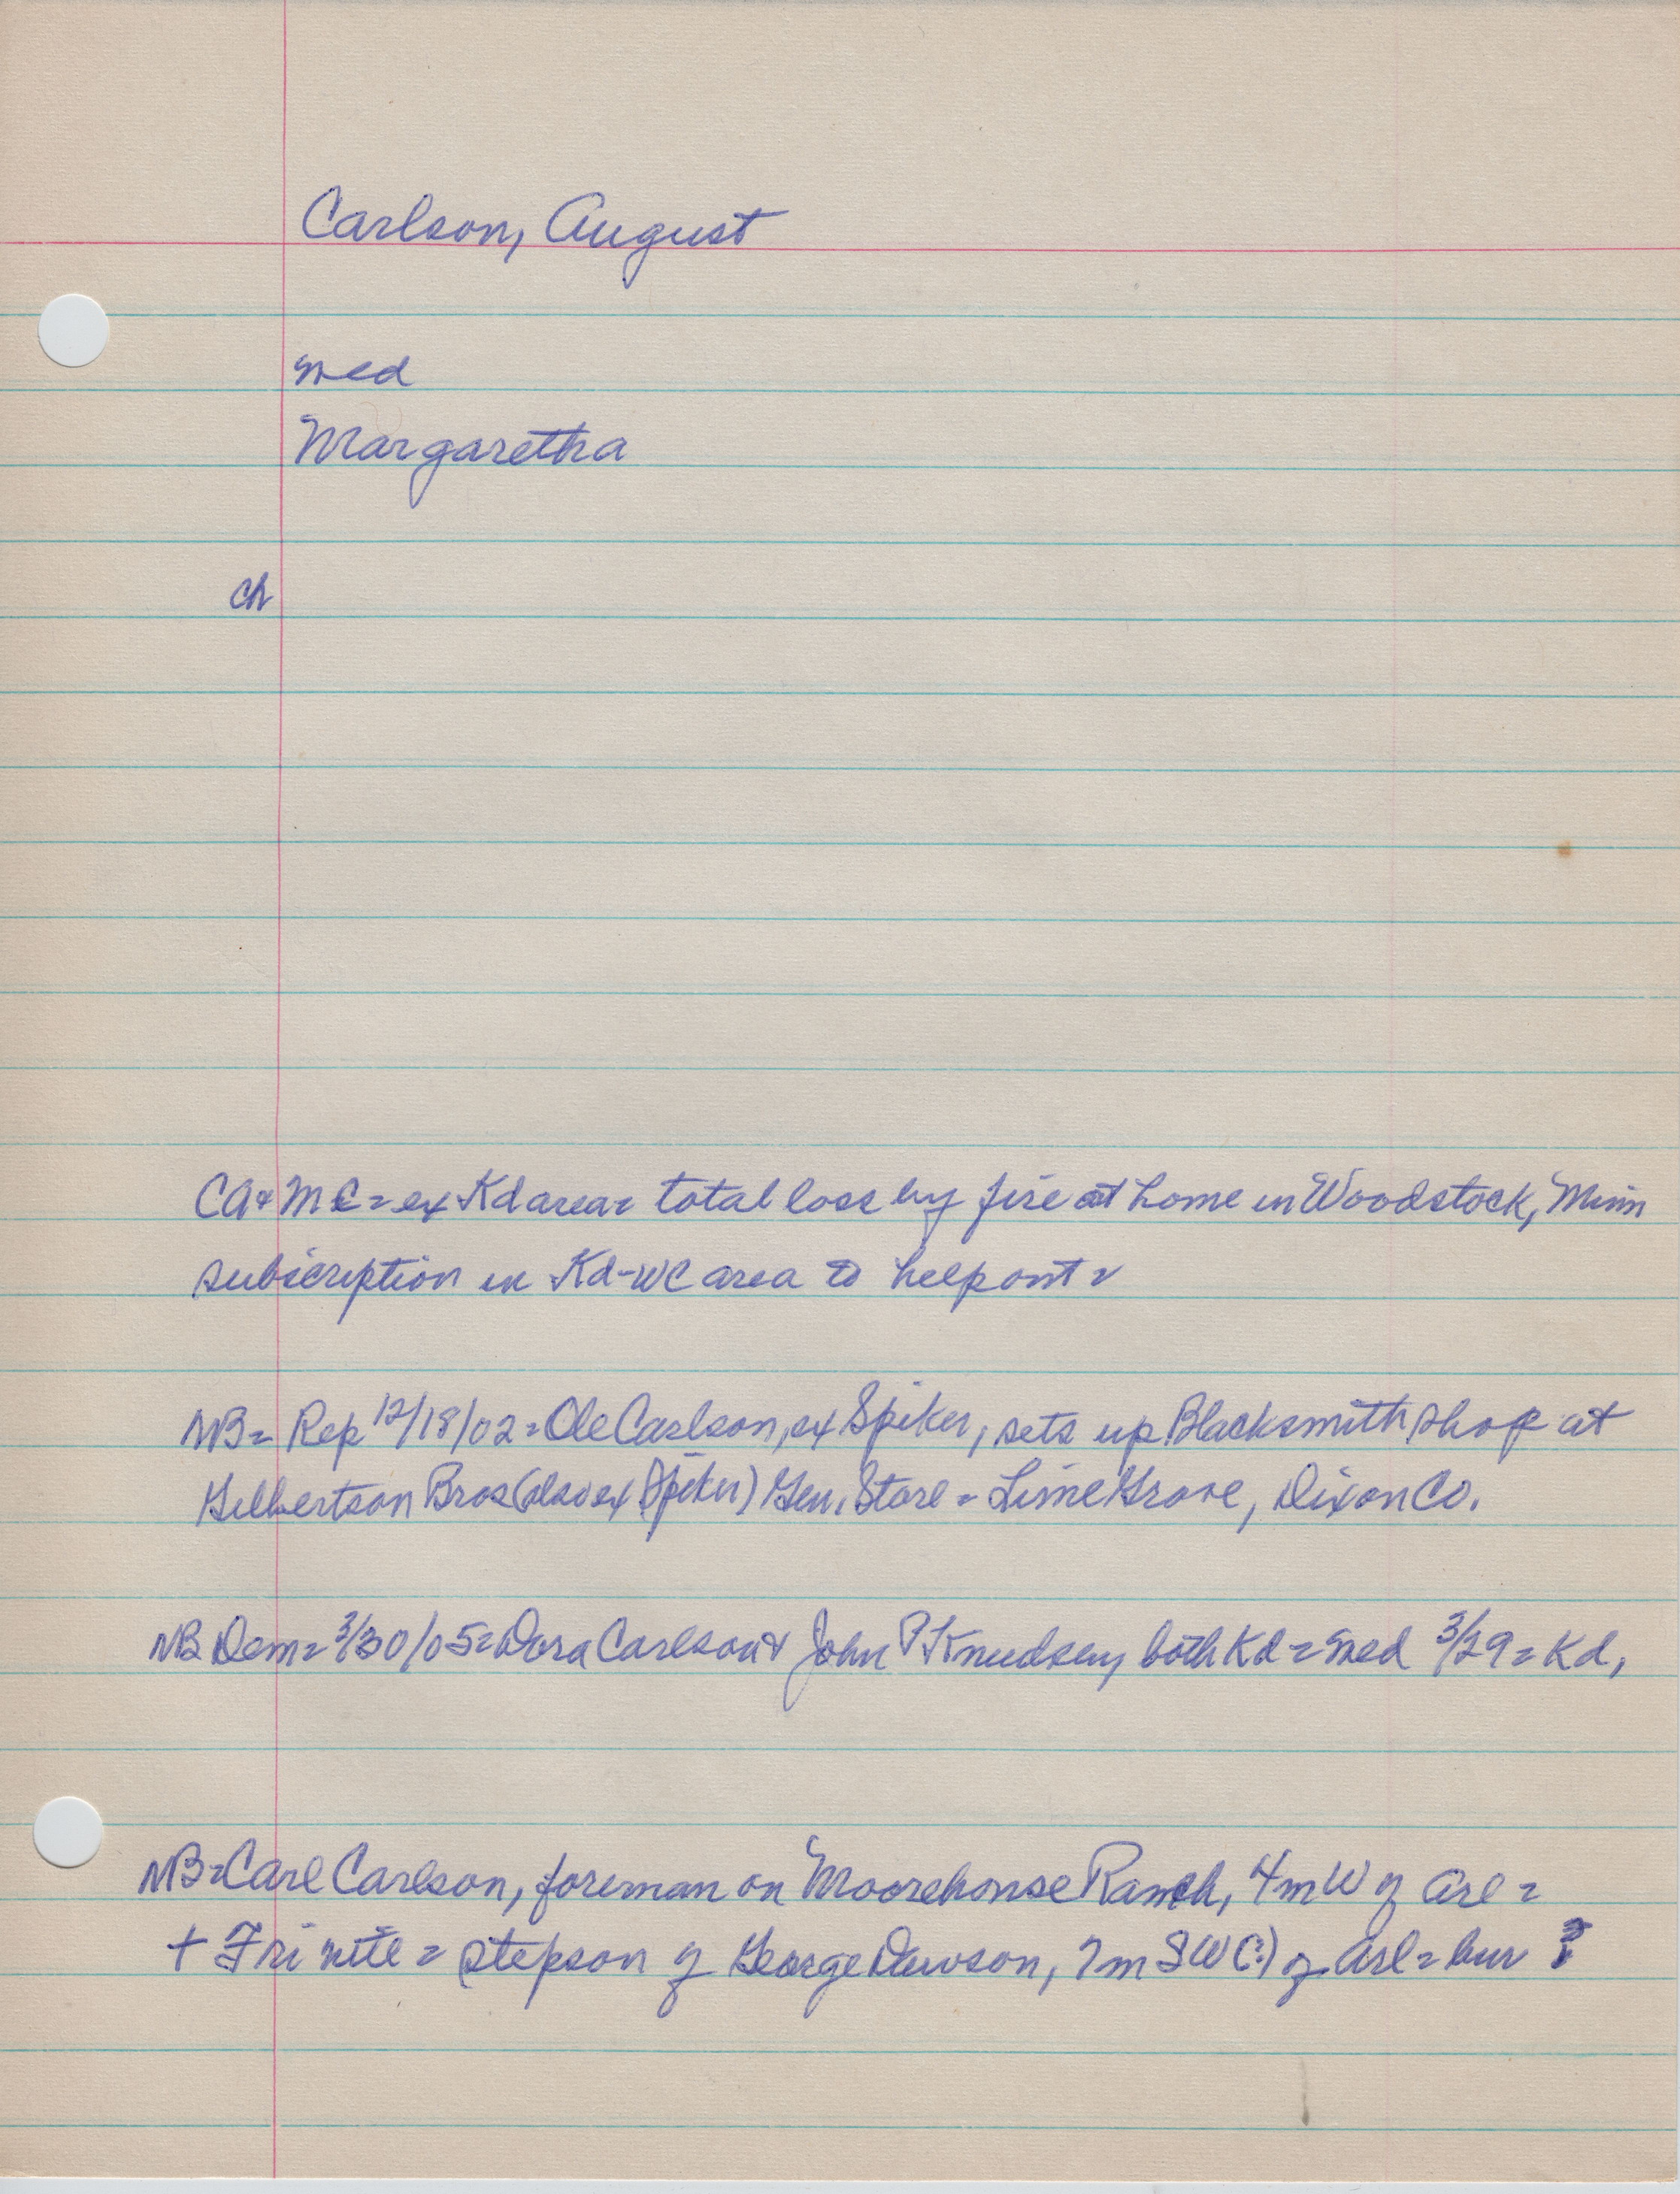 Carlson, August
med
Margaretha
ch
CA & MC = ex Kd area = total loss by fire at home in Woodstock, Minn
subscription in Kd-WC area to help out =
NB = Rep 12/18/02 = Ole Carlson, ex Spiker, sets up Blacksmith shop at
Gilbertson Bros (also ex Spiker) Gen. Store = Lime Grove, Dixon Co.
NB Dem = 3/30/05 = Dora Carlson & John P Knudsen, both Kd = med 3/29 = Kd,
NB = Carl Carlson, foreman on Moorehouse Ranch, 4 m W of Arl =
+ Fri nite = stepson of George Dawson, 7 m SW (?) of Arl = bur ?